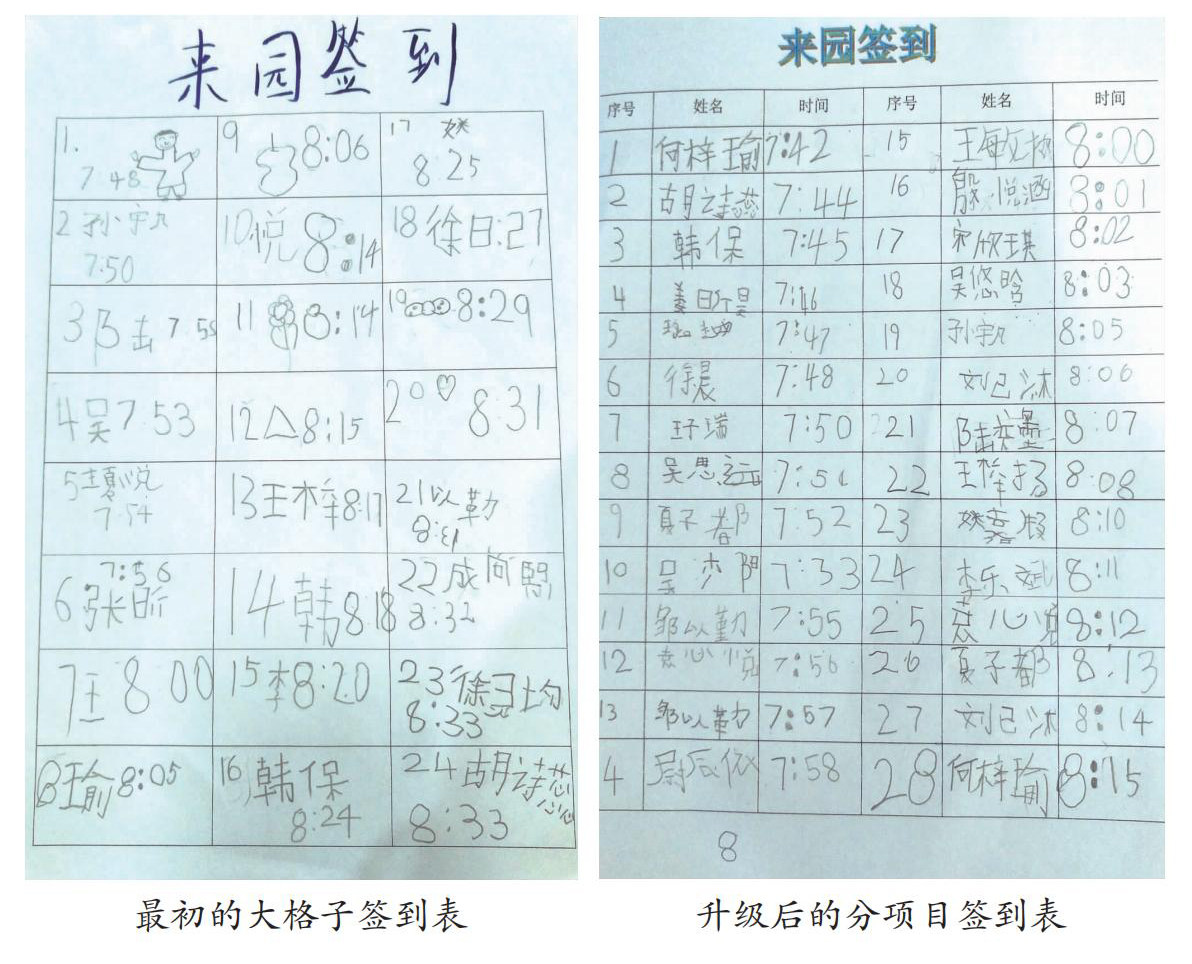 来园签到
1. 7:48
9 8:06
17 8:25
2 孙宇 7:50
10 悦 8:14
18 徐日:27
3 7:5
11 8:14
19 8:29
4 吴 7:53
12 △ 8:15
20 ♡ 8:31
5 悦 7:54
13 王梓 8:17
21 以勤 8:31
6 张昕 7:56
14 韩 8:18
22 成简熙 8:32
7 王 8 00
15 李 8:20
23 徐 均 8:33
8 瑜 8:05
16 韩保 8:24
24 胡诗蕊 8:33
来园签到
序号 姓名 时间 序号 姓名 时间
1 何梓瑜 7:42 15 王 8:00
2 胡诗蕊 7:44 16 殷悦涵 8:01
3 韩保 7:45 17 宋欣琪 8:02
4 姜昕昊 7:46 18 吴悠晗 8:03
5 7:47 19 孙宇 8:05
6 徐晨 7:48 20 刘已沐 8:06
7 王子瑞 7:50 21 陆 墨 8:07
8 吴思远 7:51 22 王梓扬 8:08
9 夏子都 7:52 23 8:10
10 吴 7:33 24 李乐斌 8:11
11 邹以勤 7:55 25 心悦 8:12
12 心悦 7:56 26 夏子都 8:13
13 邹以勤 7:57 27 刘已沐 8:14
4 尉辰依 7:58 28 何梓瑜 8:15
8
最初的大格子签到表
升级后的分项目签到表